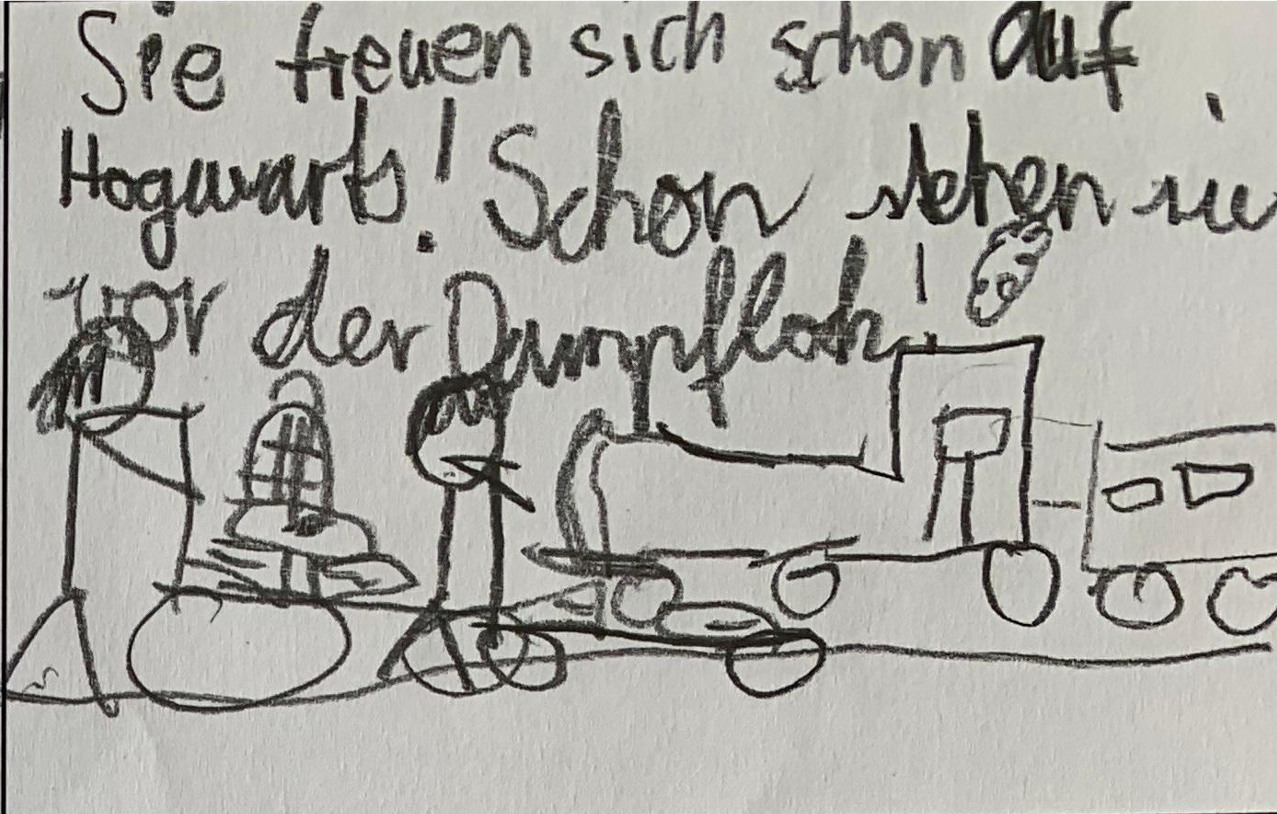 Sie freuen sich schon auf
Hogwarts! Schon stehen sie
vor der Dampflok!